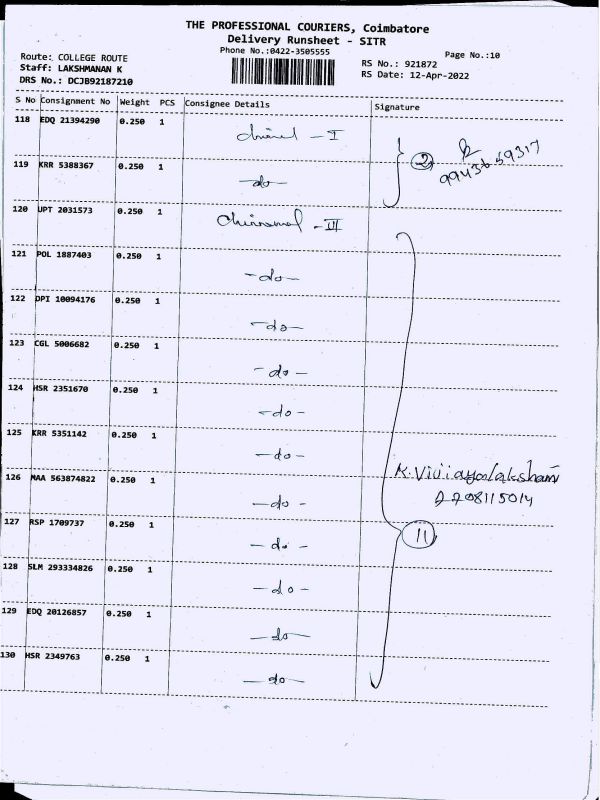 THE PROFESSIONAL COURIERS, Coimbatore
Delivery Runsheet - SITR
Phone No.:0422-3505555
Page No.:10
Route: COLLEGE ROUTE
Staff: LAKSHMANAN K
DRS No.: DCJB92187210
RS No.: 921872
RS Date: 12-Apr-2022
S No Consignment No Weight PCS Consignee Details Signature
118 EDQ 21394290 0.250 1
- I
2
119 KRR 5388367 0.250 1
-do-
120 UPT 2031573 0.250 1
- III
121 POL 1887403 0.250 1
-do-
122 DPI 10094176 0.250 1
-do-
123 CGL 5006682 0.250 1
-do-
124 HSR 2351670 0.250 1
-do-
125 KRR 5351142 0.250 1
-do-
126 MAA 563874822 0.250 1
-do-
127 RSP 1709737 0.250 1
-do-
11
128 SLM 293334826 0.250 1
-do-
129 EDQ 20126857 0.250 1
-do-
130 HSR 2349763 0.250 1
-do-